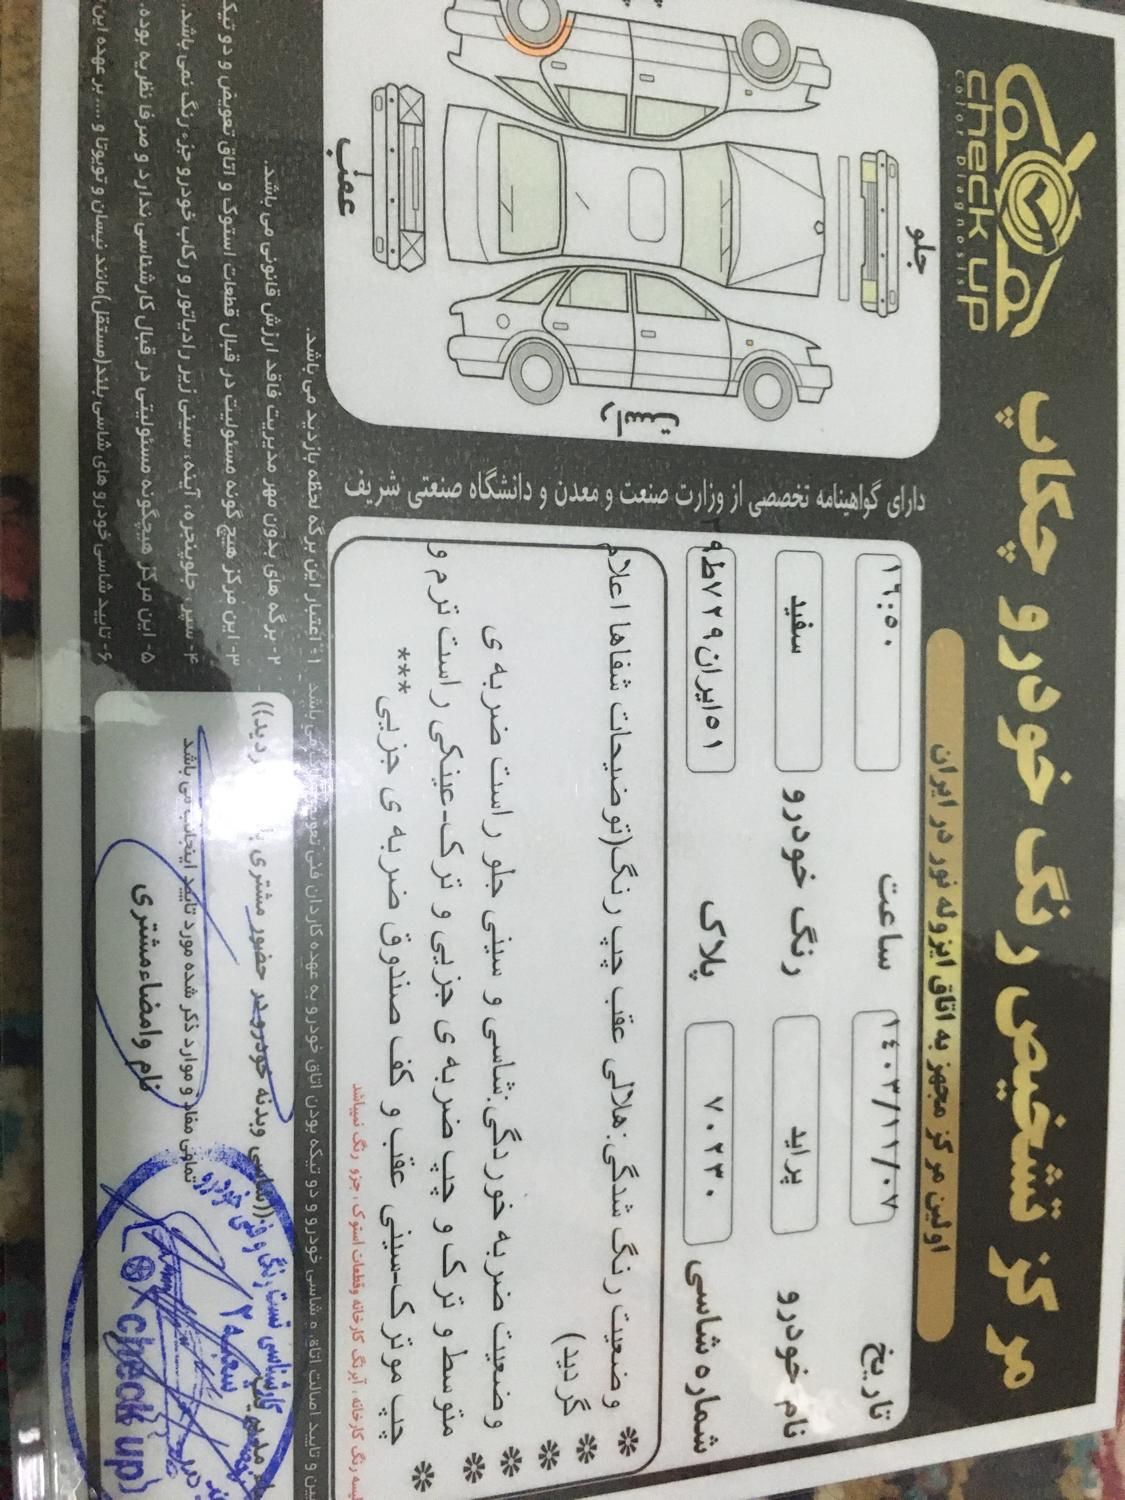 check up
Color Diagnosis
مرکز تشخیص رنگ خودرو چکاپ
اولین مرکز مجهز به اتاق ایزوله نور در ایران
تاریخ
۱۴۰۳/۱۱/۰۷
ساعت
۱۶:۵۰
نام خودرو
پراید
رنگ خودرو
سفید
شماره شاسی
۷۰۲۳۰
پلاک
۵۱ایران۷۲۹ط۹
جلو
راست
عقب
دارای گواهینامه تخصصی از وزارت صنعت و معدن و دانشگاه صنعتی شریف
وضعیت رنگ شدگی:هلالی عقب چپ رنگ(توضیحات شفاها اعلام
گردید)
وضعیت ضربه خوردگی:شاسی و سینی جلو راست ضربه ی
متوسط و ترک و چپ ضربه ی جزیی و ترک-عینکی راست ترم و
چپ موترک-سینی عقب و کف صندوق ضربه ی جزیی***
لیسه رنگ کارخانه ، آبرنگ کارخانه وقطعات استوک ، جزو رنگ نمیباشد
تایید اصالت اتاق و شاسی خودرو و دو تیکه بودن اتاق خودرو به عهده کاردان فنی می باشد
۱- اعتبار این برگه لحظه بازدید می باشد.
۲- برگه های بدون مهر مدیریت فاقد ارزش قانونی می باشد.
۳- این مرکز هیچ گونه مسئولیت در قبال قطعات استوک و اتاق تعویض و دو تیکه
۴- سپر، جلوپنجره، آینه، سینی زیر رادیاتور و رکاب خودرو جزء رنگ نمی باشد.
۵- این مرکز هیچگونه مسئولیتی در قبال کارشناسی ندارد و صرفا نظریه بوده.
۶- تایید شاسی خودرو های شاسی بلند(مستقل)مانند نیسان و تویوتا و .... بر عهده این
((شاسی وبدنه خودرو در حضور مشتری ردید))
تمامی مفاد و موارد ذکر شده مورد تایید اینجانب می باشد
نام وامضاءمشتری
کارشناسی تست رنگ و فنی خودرو
شعبه ۲
check up